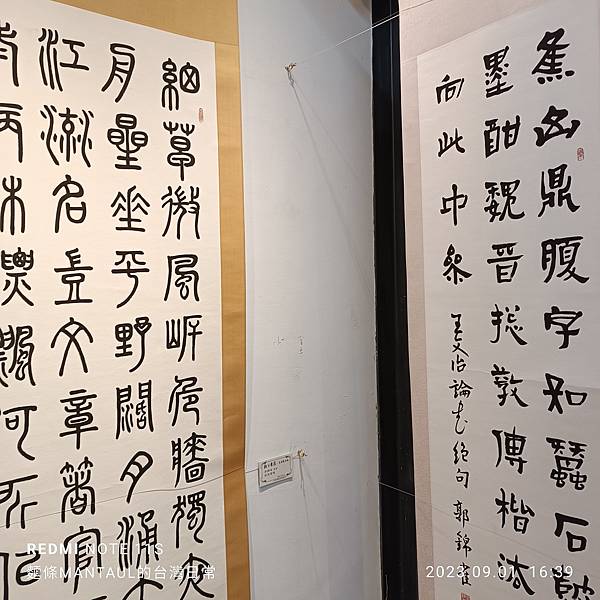 焦山鼎腹字如蠶石鼓
墨酣魏晉總教傳楷法
向此中參
王文治論書絕句 郭錦
細草微風岸危檣獨夜
舟星垂平野闊月湧
江流名豈文章著官
老病休飄飄何所似
REDMI NOTE 11S
麵條MANTAUL的台灣日常
2023.09.01 16:39